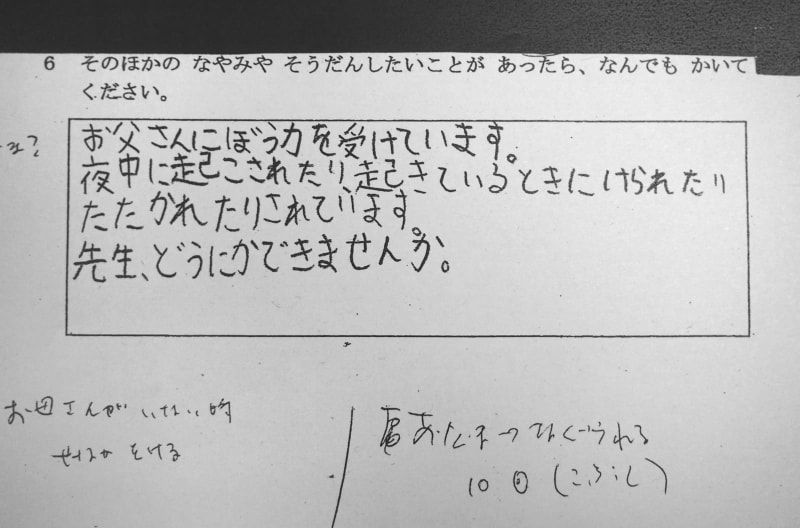 6 そのほかの なやみや そうだんしたいことが あったら、なんでも かいて
ください。
お父さんにぼう力を受けています。
夜中に起こされたり、起きているときにけられたり
たたかれたりされています。
先生、どうにかできませんか。
お母さんがいない時
あたまつなぐられる
10回(こぶし)